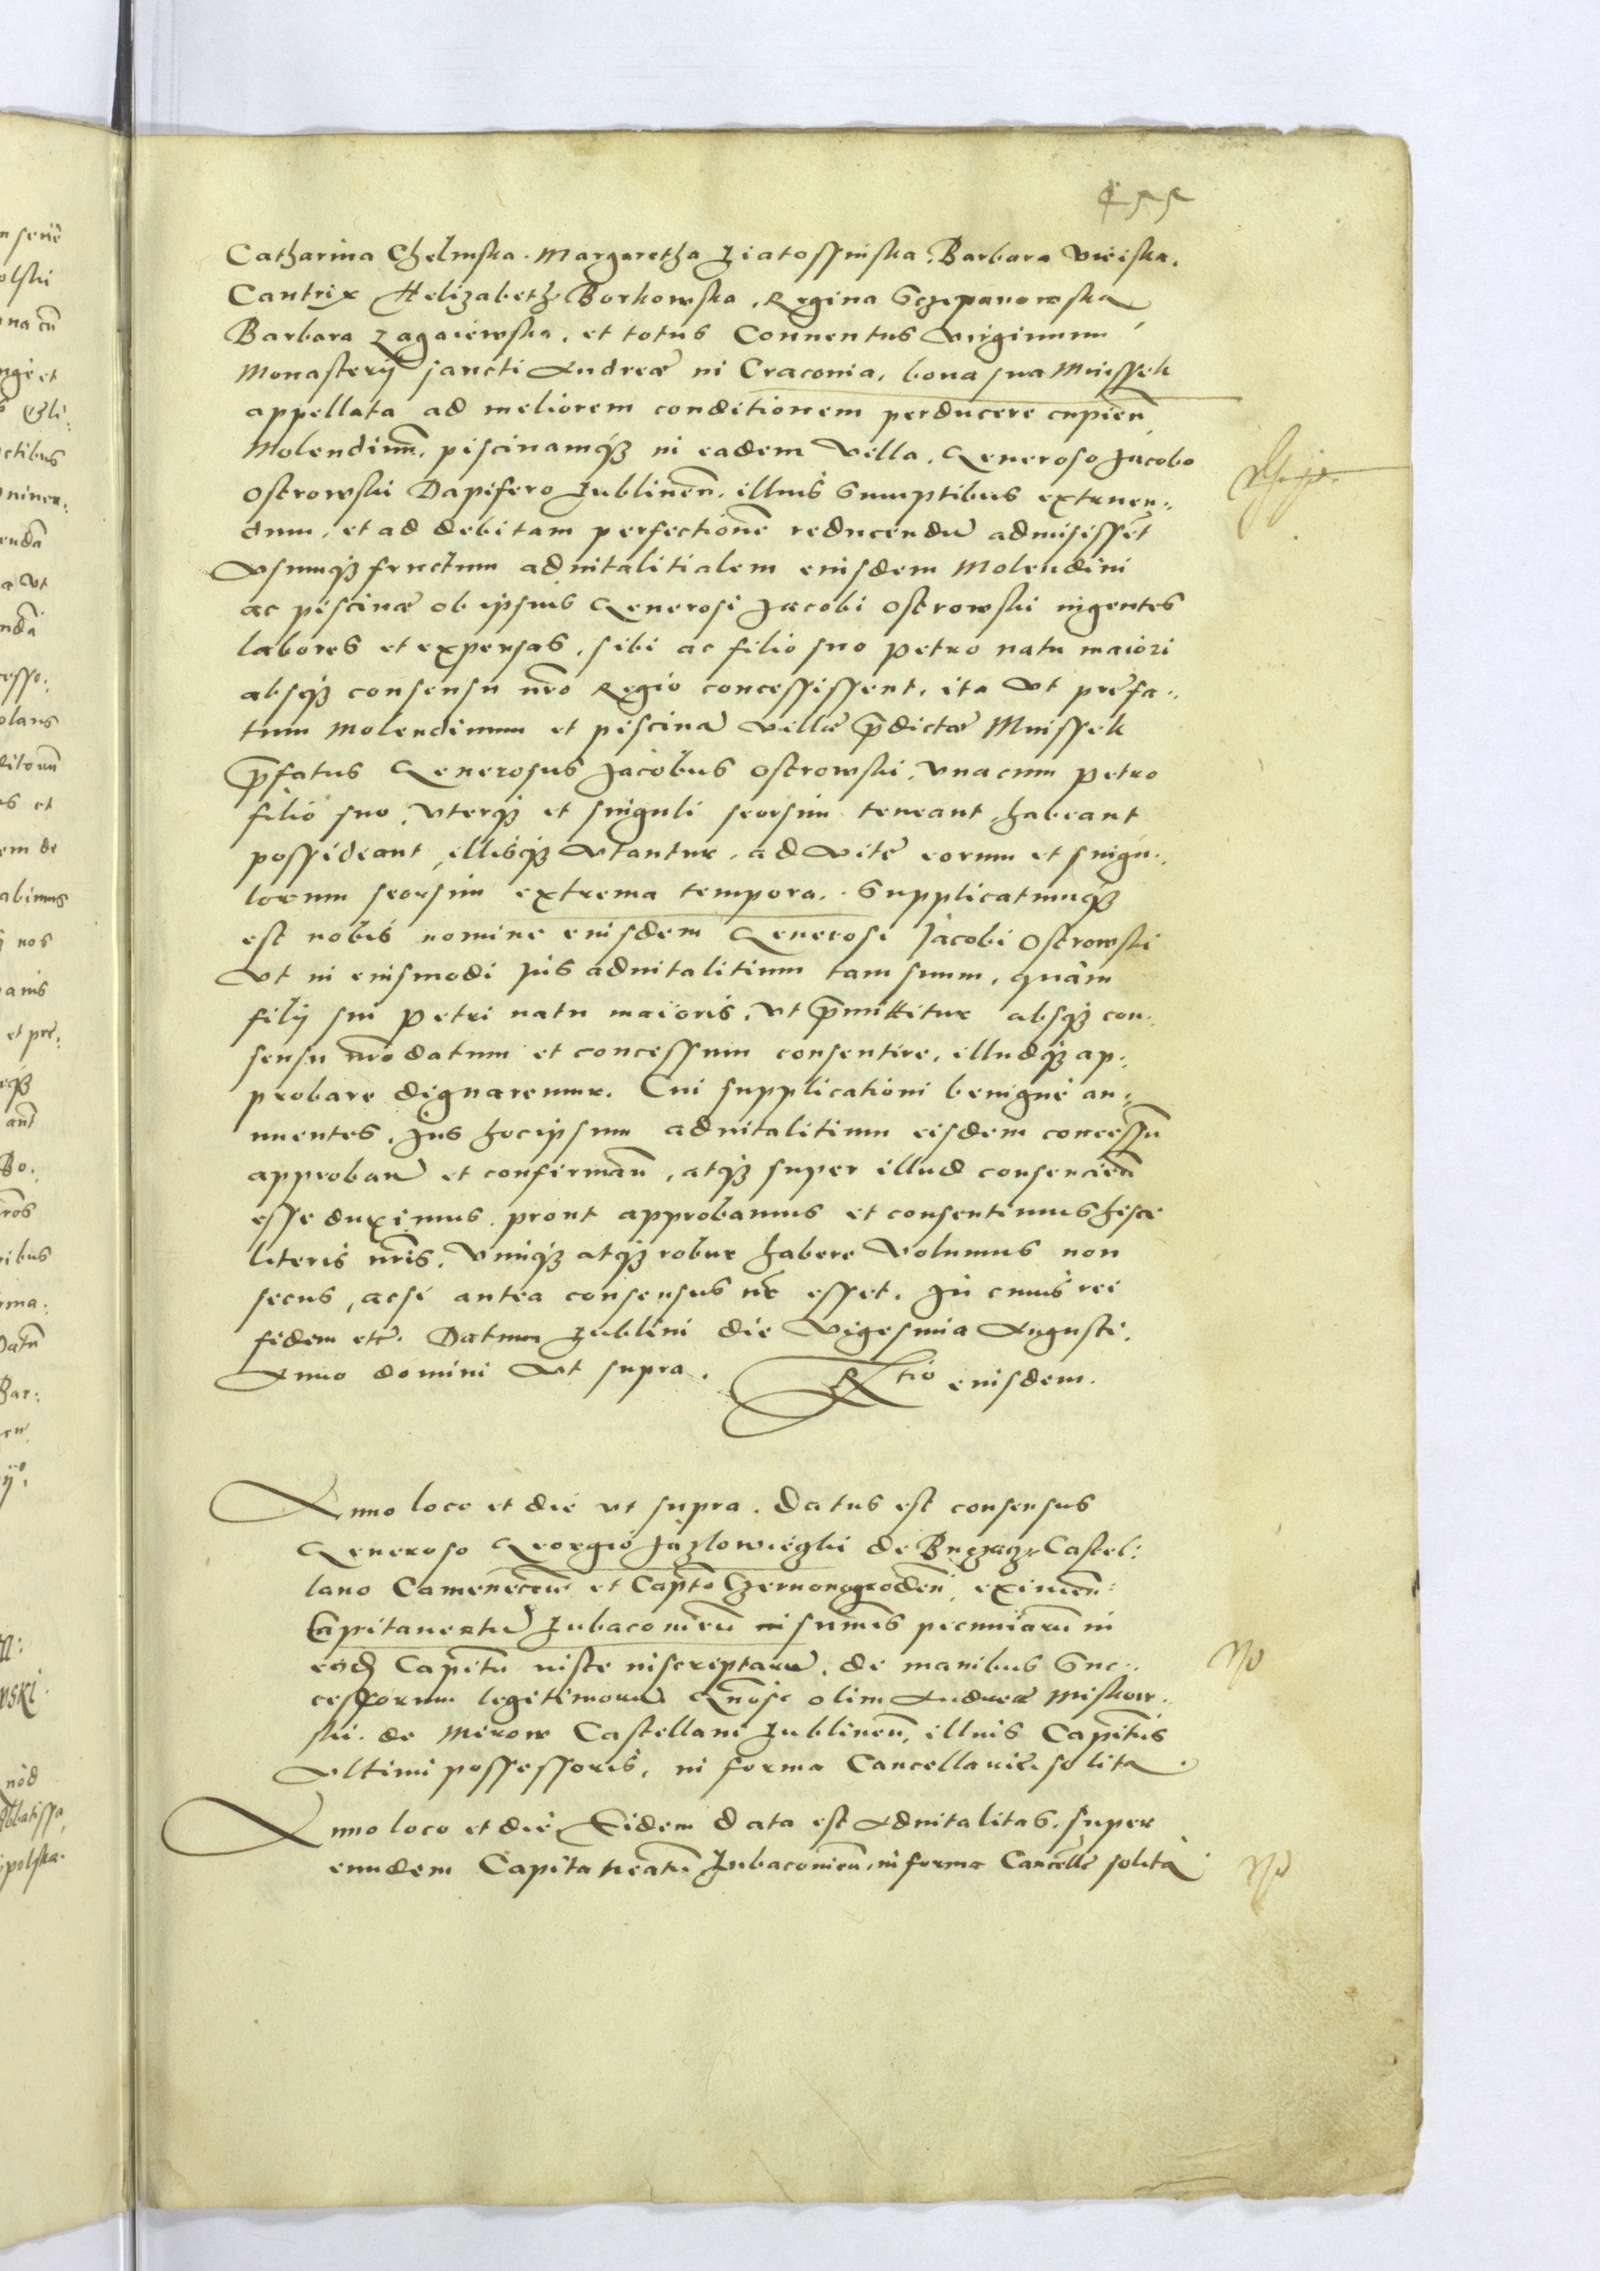 455
Catharina Chelmska. Margaretha Ziatossinska. Barbara Vieiska.
Cantrix Helizabeth Borkowska, Regina Sczepanowska
Barbara Zagaiewska, et totus Conuentus virginum
Monasterij sancti Andreæ in Cracouia, bona sua Mnissek
appellata ad meliorem conditionem perducere cupien̄
Molendinū, piscinamq3 in eadem villa, Generoso Jacobo
Ostrowski Dapifero Lublinen̄. illius Sumptibus extruen:
dum, et ad debitam perfectionē reducendū admisissēt
Vsumq3 fructum aduitalitialem eiusdem Molendini
ac piscinæ ob ipsius Generosi Jacobi Ostrowski ingentes
labores et expensas, sibi ac filio suo Petro natu maiori
absq3 consensu nr̄o Regio concessissent, ita vt præfa:
tum Molendinum et piscinā villæ p̄dictæ Mnissek
p̄fatus Generosus Jacobus Ostrowski, vnacum Petro
filio suo, vterq3 et singuli seorsim teneant habeant
possideant, illisq3 vtantur, ad vitę eorum et singu:
lorum seorsim extrema tempora. Supplicatumq3
est nobis nomine eiusdem Generosi Jacobi Ostrowski
Vt in eiusmodi ius aduitalitium tam suum, quàm
filij sui Petri natu maioris, vt p̄mittitur absq3 con:
sensu nr̄o datum et concessum consentire, illudq3 ap:
probare dignaremur. Cui supplicationi benignè an:
nuentes, Jus hocipsum aduitalitium eisdem concessū
approban̄ et confirman̄, atq3 super illud consencien̄
esse duximus, prout approbamus et consentimus hisce
literis nr̄is. Vimq3 atq3 robur habere volumus non
secus, acsi antea consensus nr̄ esset. In cuius rei
fidem etc̄. Datum Lublini die vigesima Augusti.
Anno domini vt supra. Rtio eiusdem.
Anno loco et die vt supra. Datus est consensus
Generoso Georgio Jazlowieczki de Buczacz Castel:
lano Camenecen̄ et Capto Czernonogroden̄, eximen̄:
Capitaneatū Lubaconien̄ in sum̄is pecuniarū in
eod Capitn̄ iuste inscriptarū, de manibus Suc:
cessorum legitimorū Gnosi olim Andreæ Miskow:
ski de Mirow Castellani Lublinen̄, illius Capitn̄s
vltimi possessoris, in forma Cancellariæ solita.
Anno loco et die Eidem data est Aduitalitas, super
eundem Capitaneatū Lubaconien̄, in forma Cancellr̄ solita
No
No